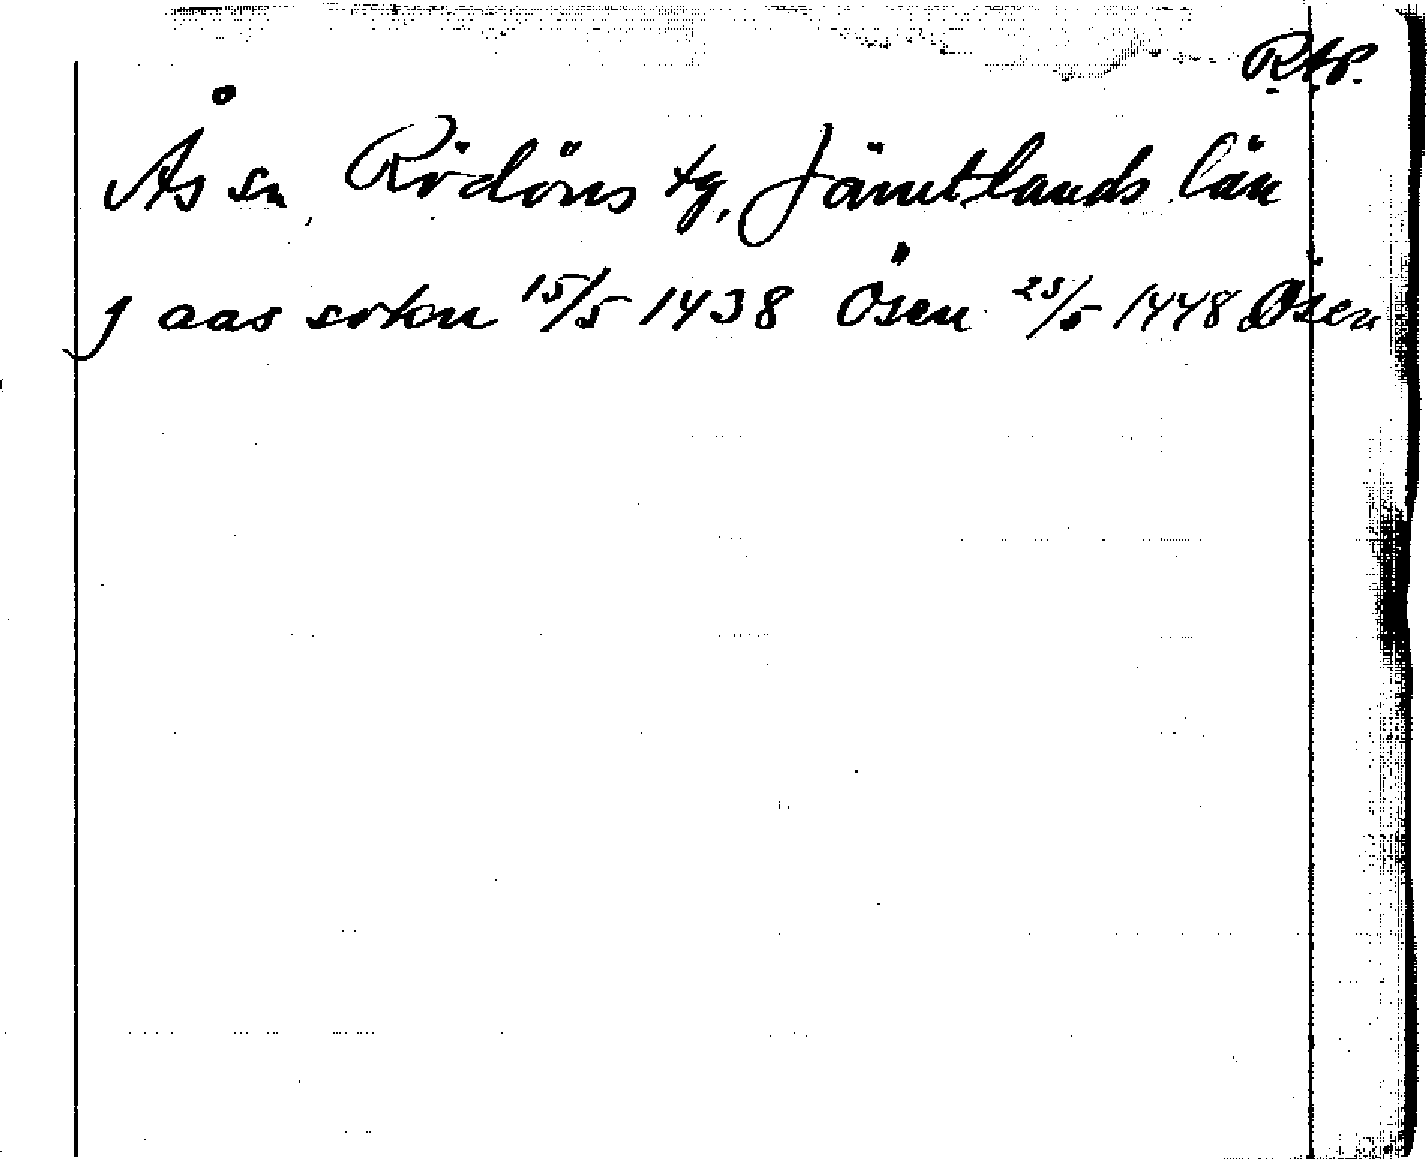 R.A.P.
Ås sn, Rödöns tg, Jämtlands län
J aas sokn 15/5 1438 Ösen 25/5 1448 Ösen